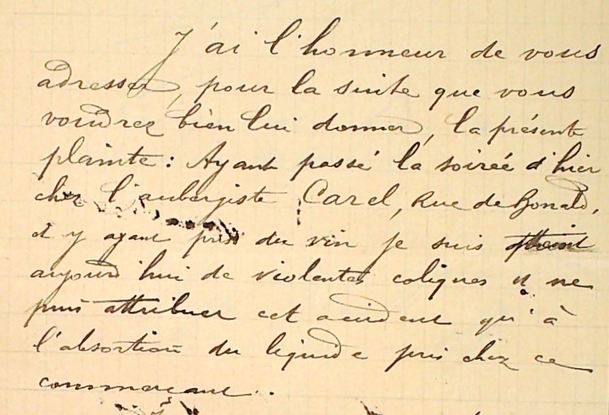 J'ai l'honneur de vous
adresser, pour la suite que vous
voudrez bien lui donner, la présente
plainte : Ayant passé la soirée d'hier
chez l'aubergiste Carel, Rue de Bonald,
et y ayant pris du vin je suis atteint
aujourd'hui de violentes coliques et ne
puis attribuer cet accident qu'à
l'absortion du liquide pris chez ce
commerçant.